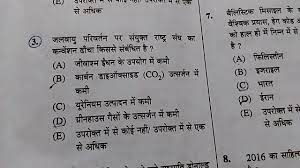 से अधिक
3. जलवायु परिवर्तन पर संयुक्त राष्ट्र संघ का
कन्वेंशन ढाँचा किससे संबंधित है ?
(A) जीवाश्म ईंधन के उपयोग में कमी
(B) कार्बन डाइऑक्साइड (CO₂) उत्सर्जन में
कमी
(C) यूरेनियम उत्पादन में कमी
(D) ग्रीनहाउस गैसों के उत्सर्जन में कमी
(E) उपरोक्त में से कोई नहीं/उपरोक्त में से एक
से अधिक
7. बैलिस्टिक मिसाइल के
वैश्विक प्रयास, हेग कोड
को हाल ही में निम्न में से
है ?
(A) फिलिस्तीन
(B) इजराइल
(C) भारत
(D) ईरान
(E) उपरोक्त में से
से अधिक
8. 2016 का